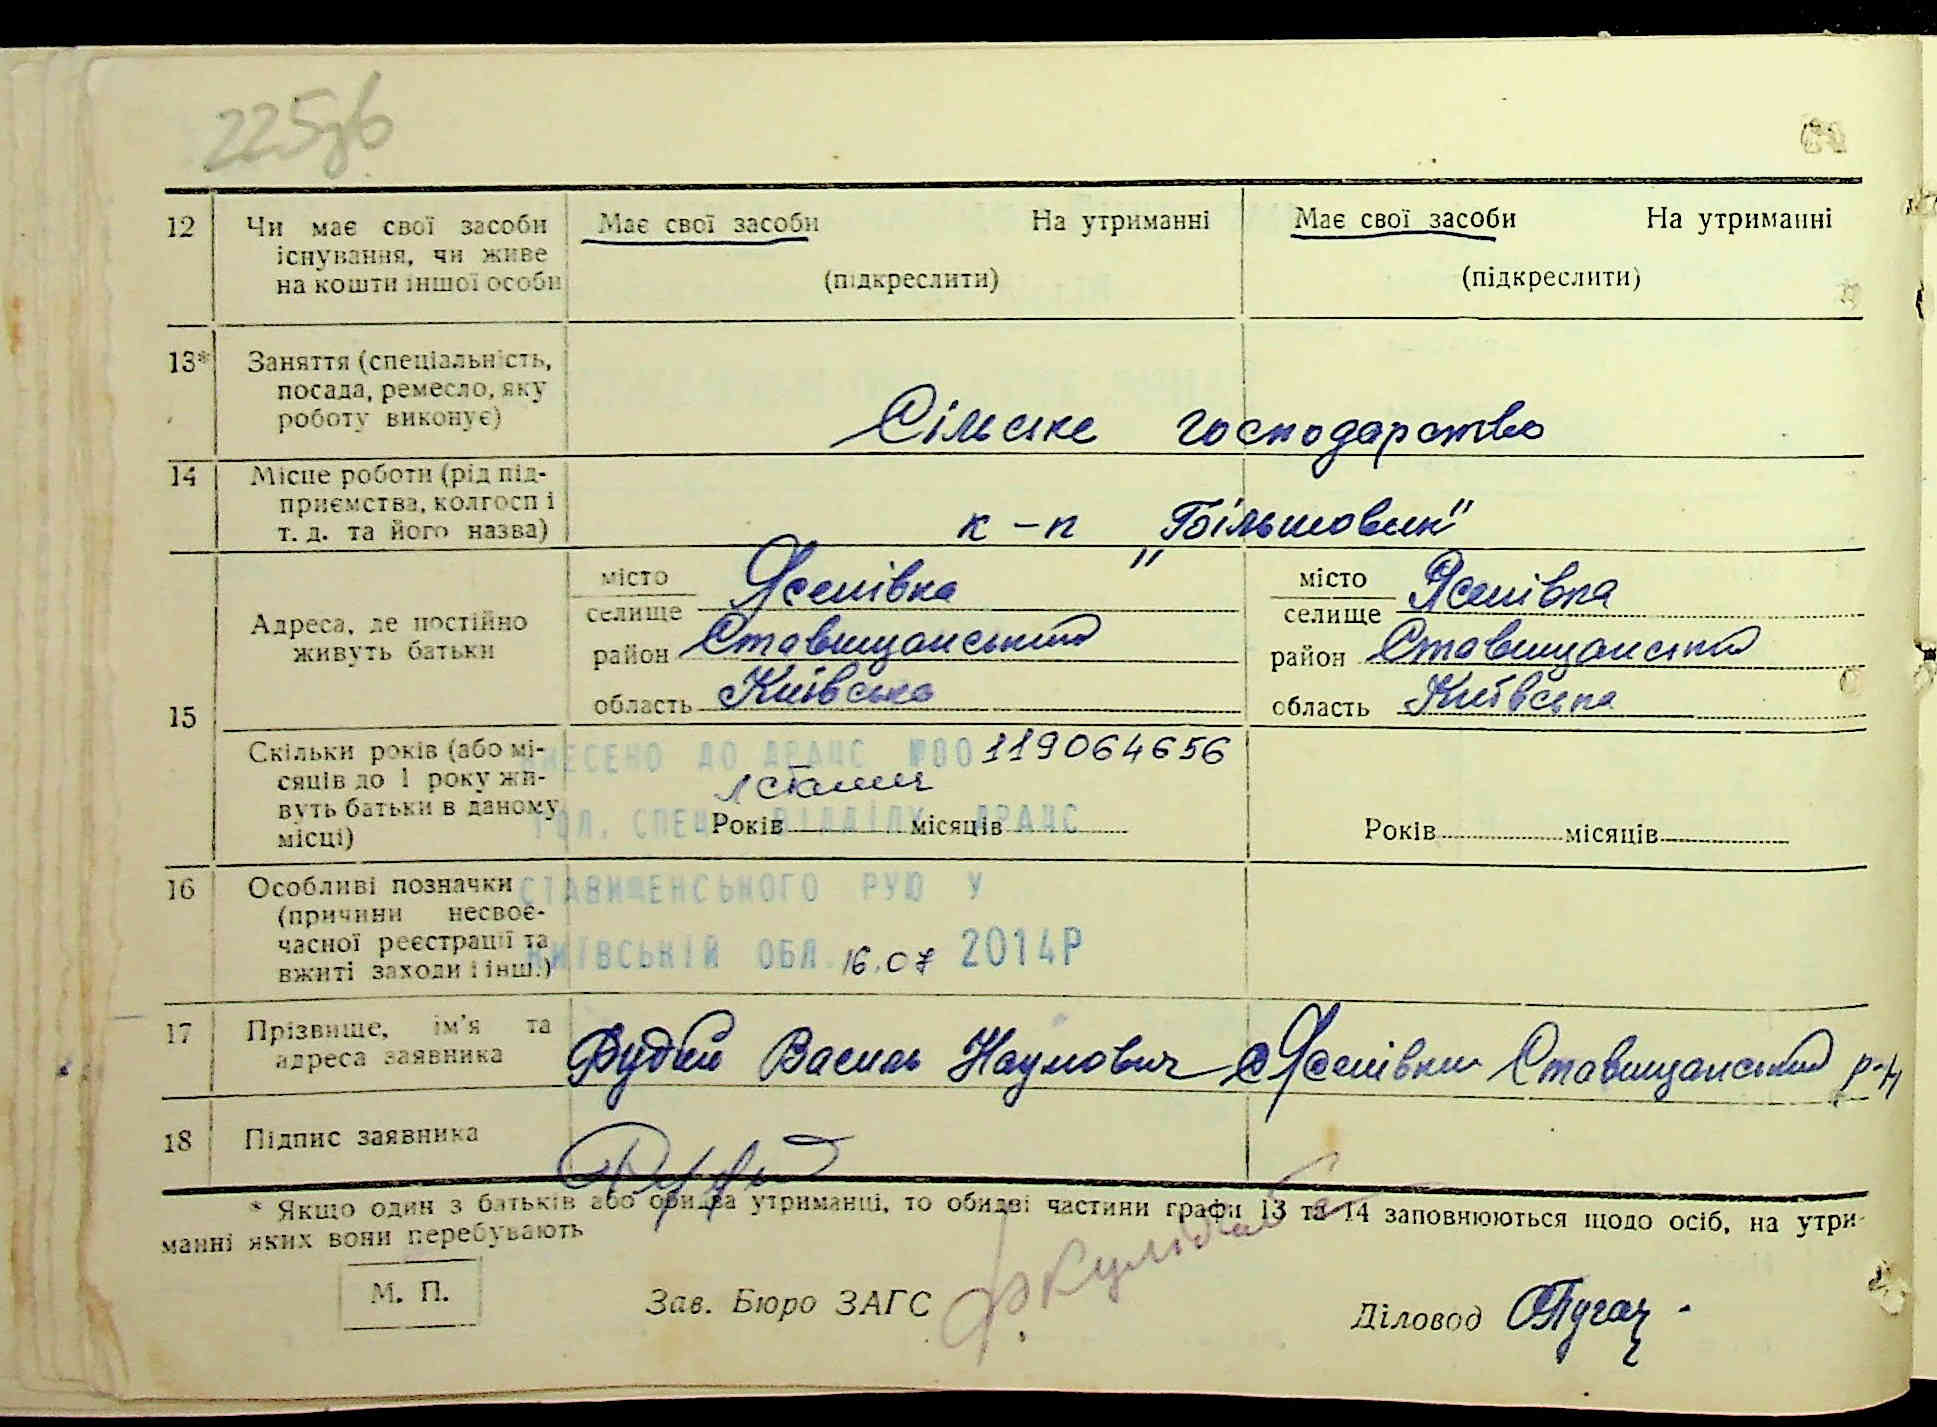 225зв
12 Чи має свої засоби існування, чи живе на кошти іншої особи
Має свої засоби На утриманні
(підкреслити)
Має свої засоби На утриманні
(підкреслити)
13* Заняття (спеціальність,
посада, ремесло, яку
роботу виконує)
Сільське господарство
14 Місце роботи (рід під-
приємства, колгосп і
т. д. та його назва)
к-п "Більшовик"
15
Адреса, де постійно
живуть батьки
місто
селище Ясенівка
район Ставищанський
область Київська
місто
селище Ясенівка
район Ставищанський
область Київська
Скільки років (або мі-
сяців до 1 року жи-
вуть батьки в даному
місці)
Років місяців
Років місяців
ВНЕСЕНО ДО ДРАЦС №00119064656
ГОЛ. СПЕЦ. ВІДДІЛУ ДРАЦС
СТАВИЩЕНСЬКОГО РУЮ У
КИЇВСЬКІЙ ОБЛ. 16.07 2014Р
16 Особливі позначки
(причини несвоє-
часної реєстрації та
вжиті заходи і інш.)
17 Прізвище, ім'я та
адреса заявника
Василь Наумович с Ясенівки Ставищанський р-н
18 Підпис заявника
* Якщо один з батьків або обидва утриманці, то обидві частини графи 13 та 14 заповнюються щодо осіб, на утри-
манні яких вони перебувають
М. П.
Зав. Бюро ЗАГС
Діловод Пугач